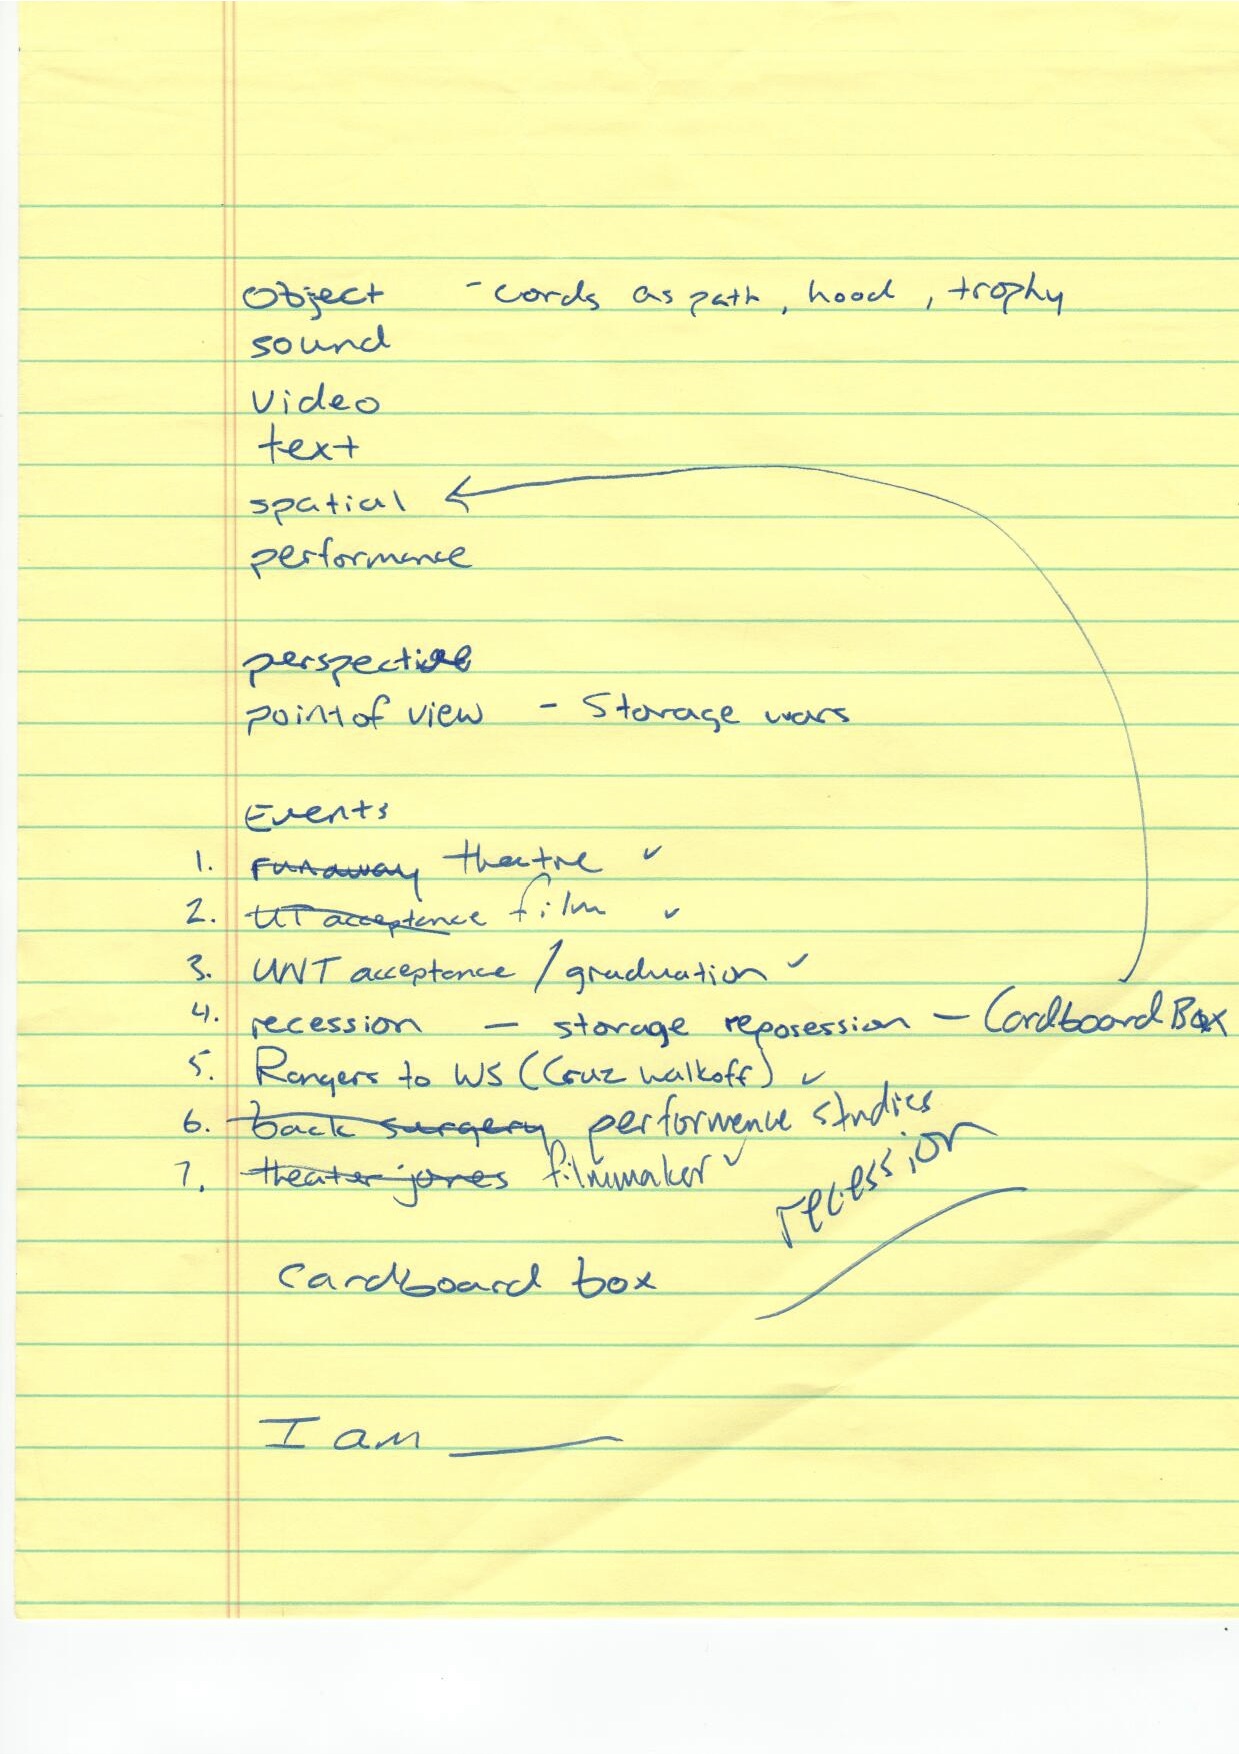 object - cords as path, hood, trophy
sound
video
text
spatial
performance
perspective
point of view - Storage wars
Events
1. runaway theatre ✓
2. UT acceptance film ✓
3. UNT acceptance / graduation ✓
4. recession — storage reposession — Cardboard Box
5. Rangers to WS (Cruz walkoff) ✓
6. back surgery performence studies
7. theater jones filmmaker ✓
recession
cardboard box
I am ____